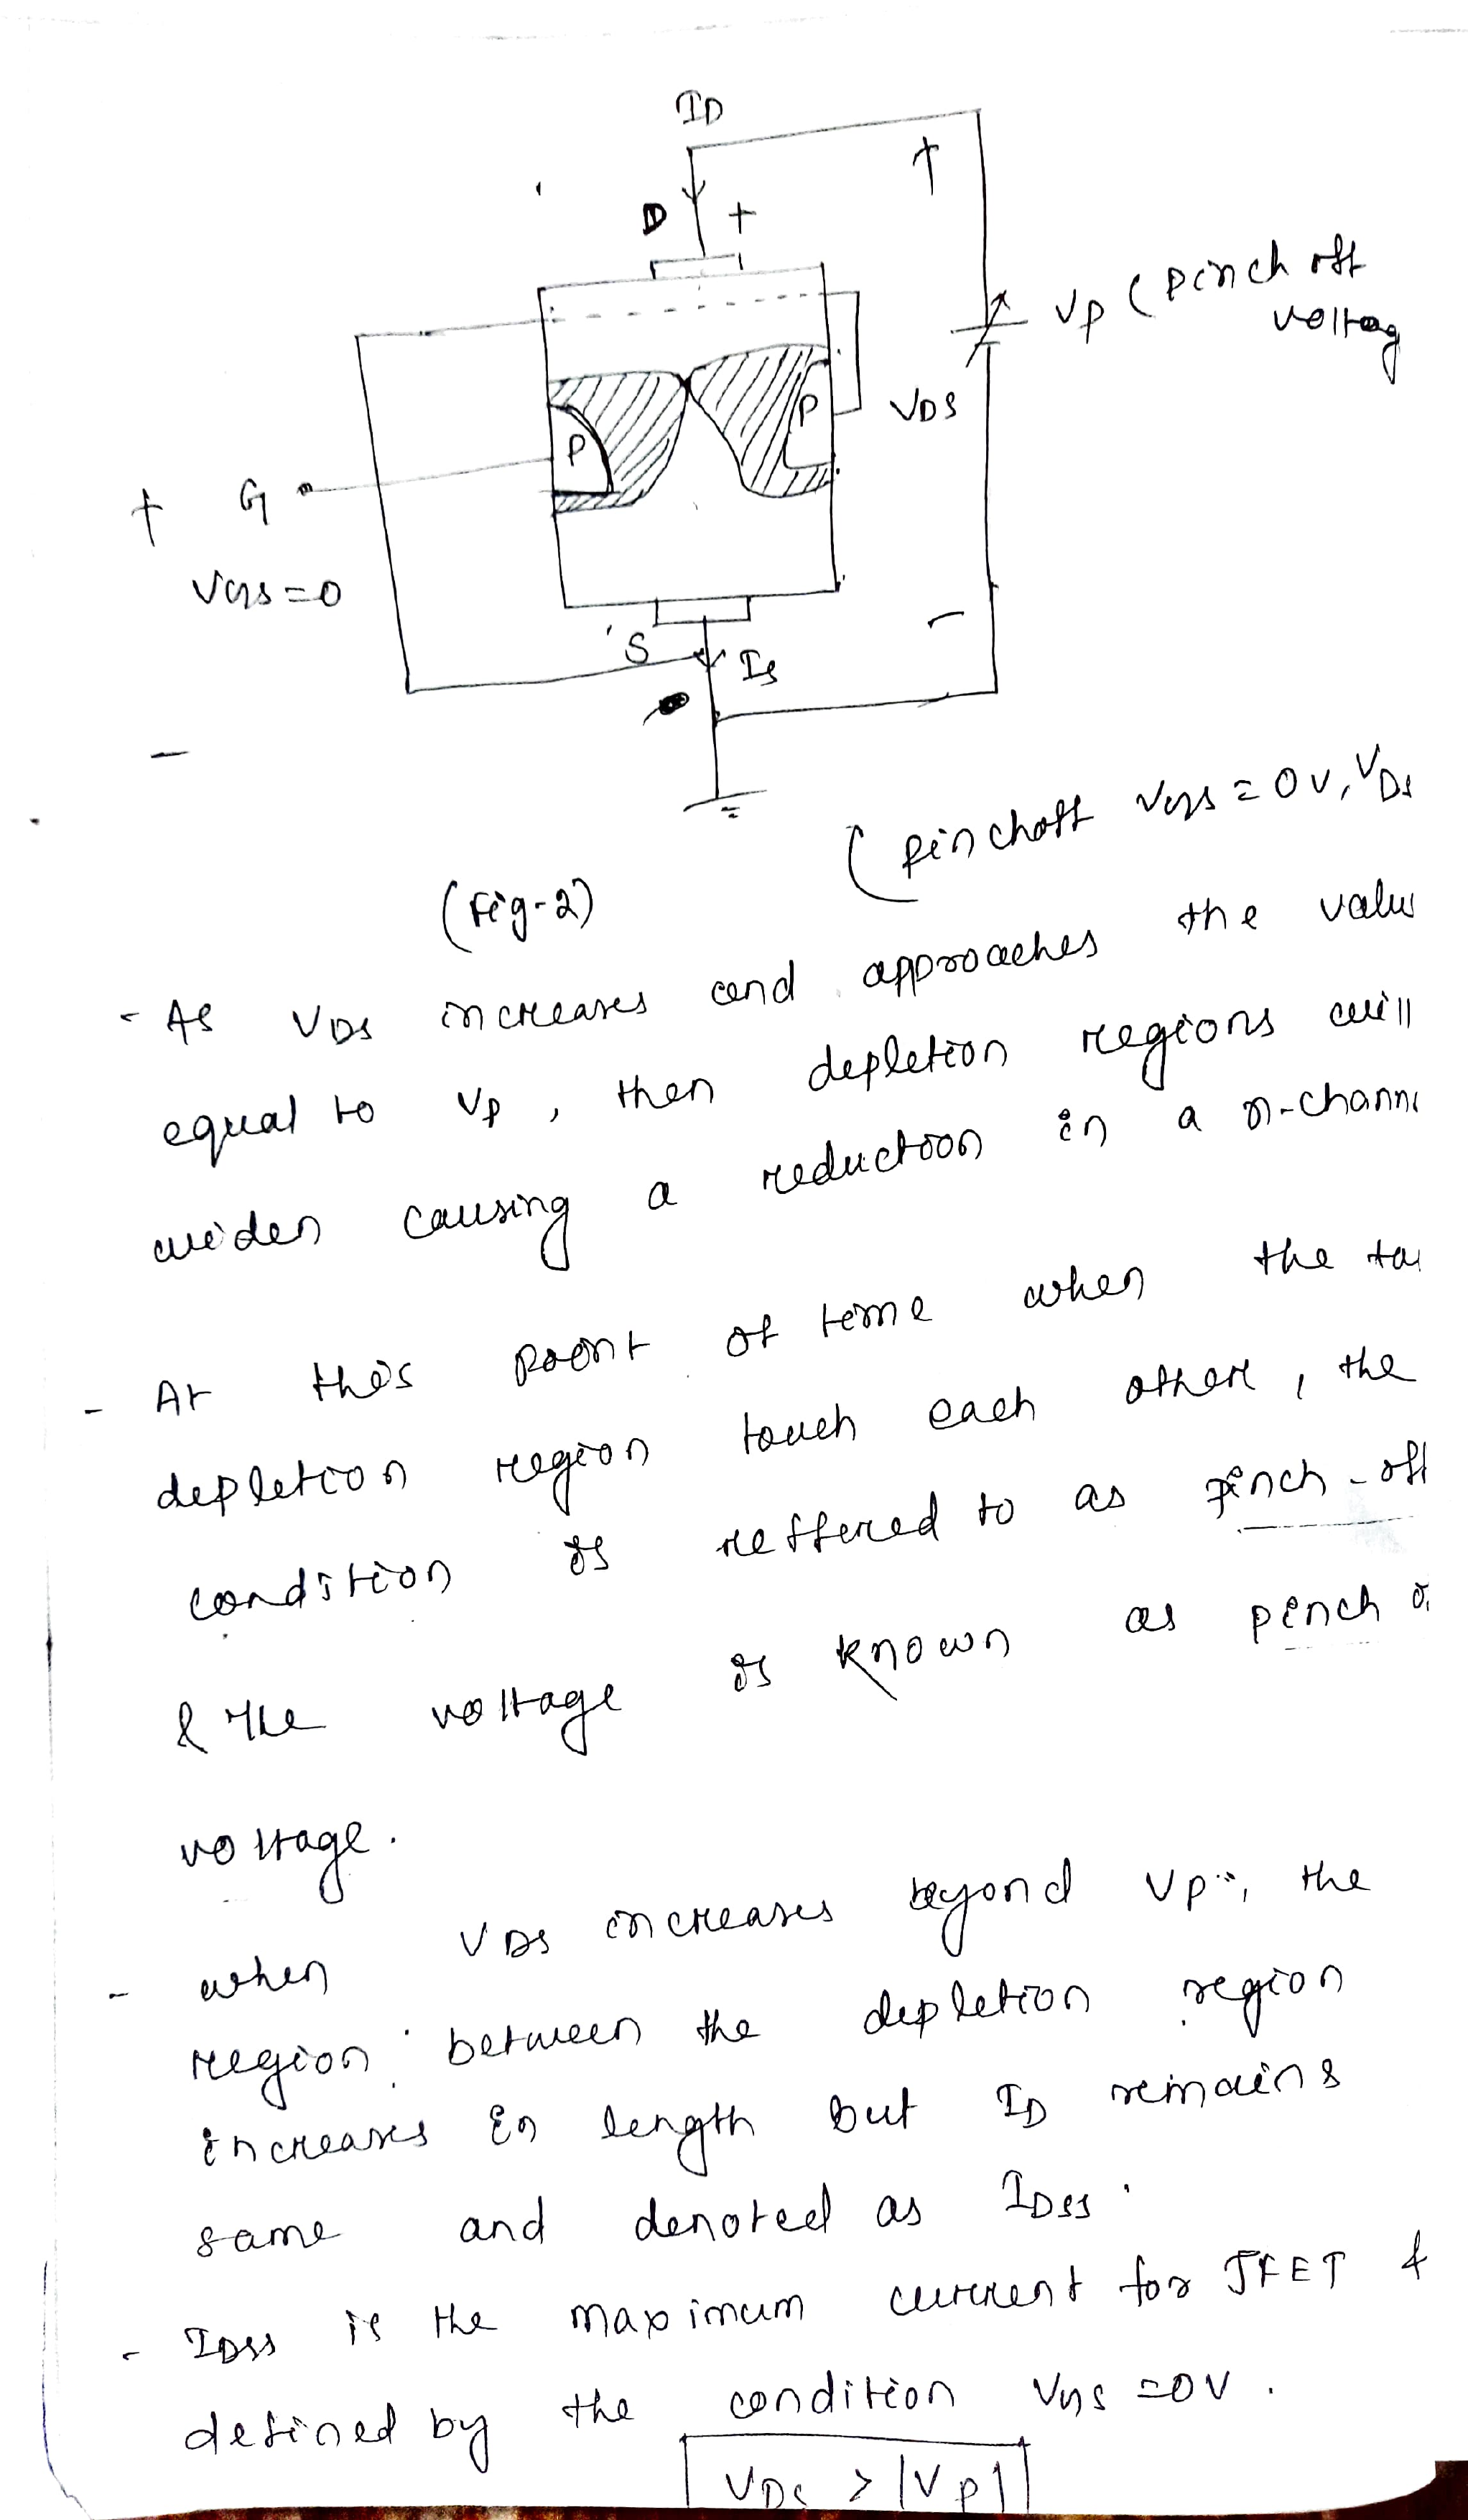 ID
D +
↑
VP ( Pinch off
voltag
P
P
VDS
+ G
VGS = 0
S
IS
-
-
(Fig-2)
( Pinchoff VGS = 0V, VDS
- As VDS increases and approaches the value
equal to VP, then depletion regions will
widen causing a reduction in a n-channe
- At this point of time when the
depletion region touch each other, the
condition is reffered to as pinch-off
& the voltage is known as pinch o
voltage.
- when VDS increases beyond VP, the
region between the depletion region
increases in length but ID remains
same and denoted as IDSS.
- IDSS is the maximum current for JFET &
defined by the condition VGS = 0V.
VDS > |VP|